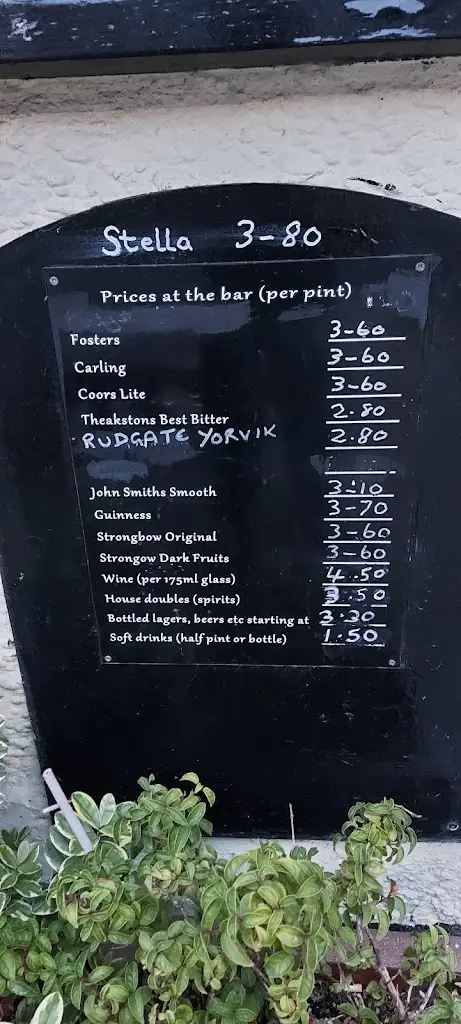 Stella 3-80
Prices at the bar (per pint)
Fosters 3-60
Carling 3-60
Coors Lite 3-60
Theakstons Best Bitter 2.80
RUDGATE YORVIK 2.80
John Smiths Smooth 3-10
Guinness 3-70
Strongbow Original 3-60
Strongow Dark Fruits 3-60
Wine (per 175ml glass) 4.50
House doubles (spirits) 3.50
Bottled lagers, beers etc starting at 3.20
Soft drinks (half pint or bottle) 1.50